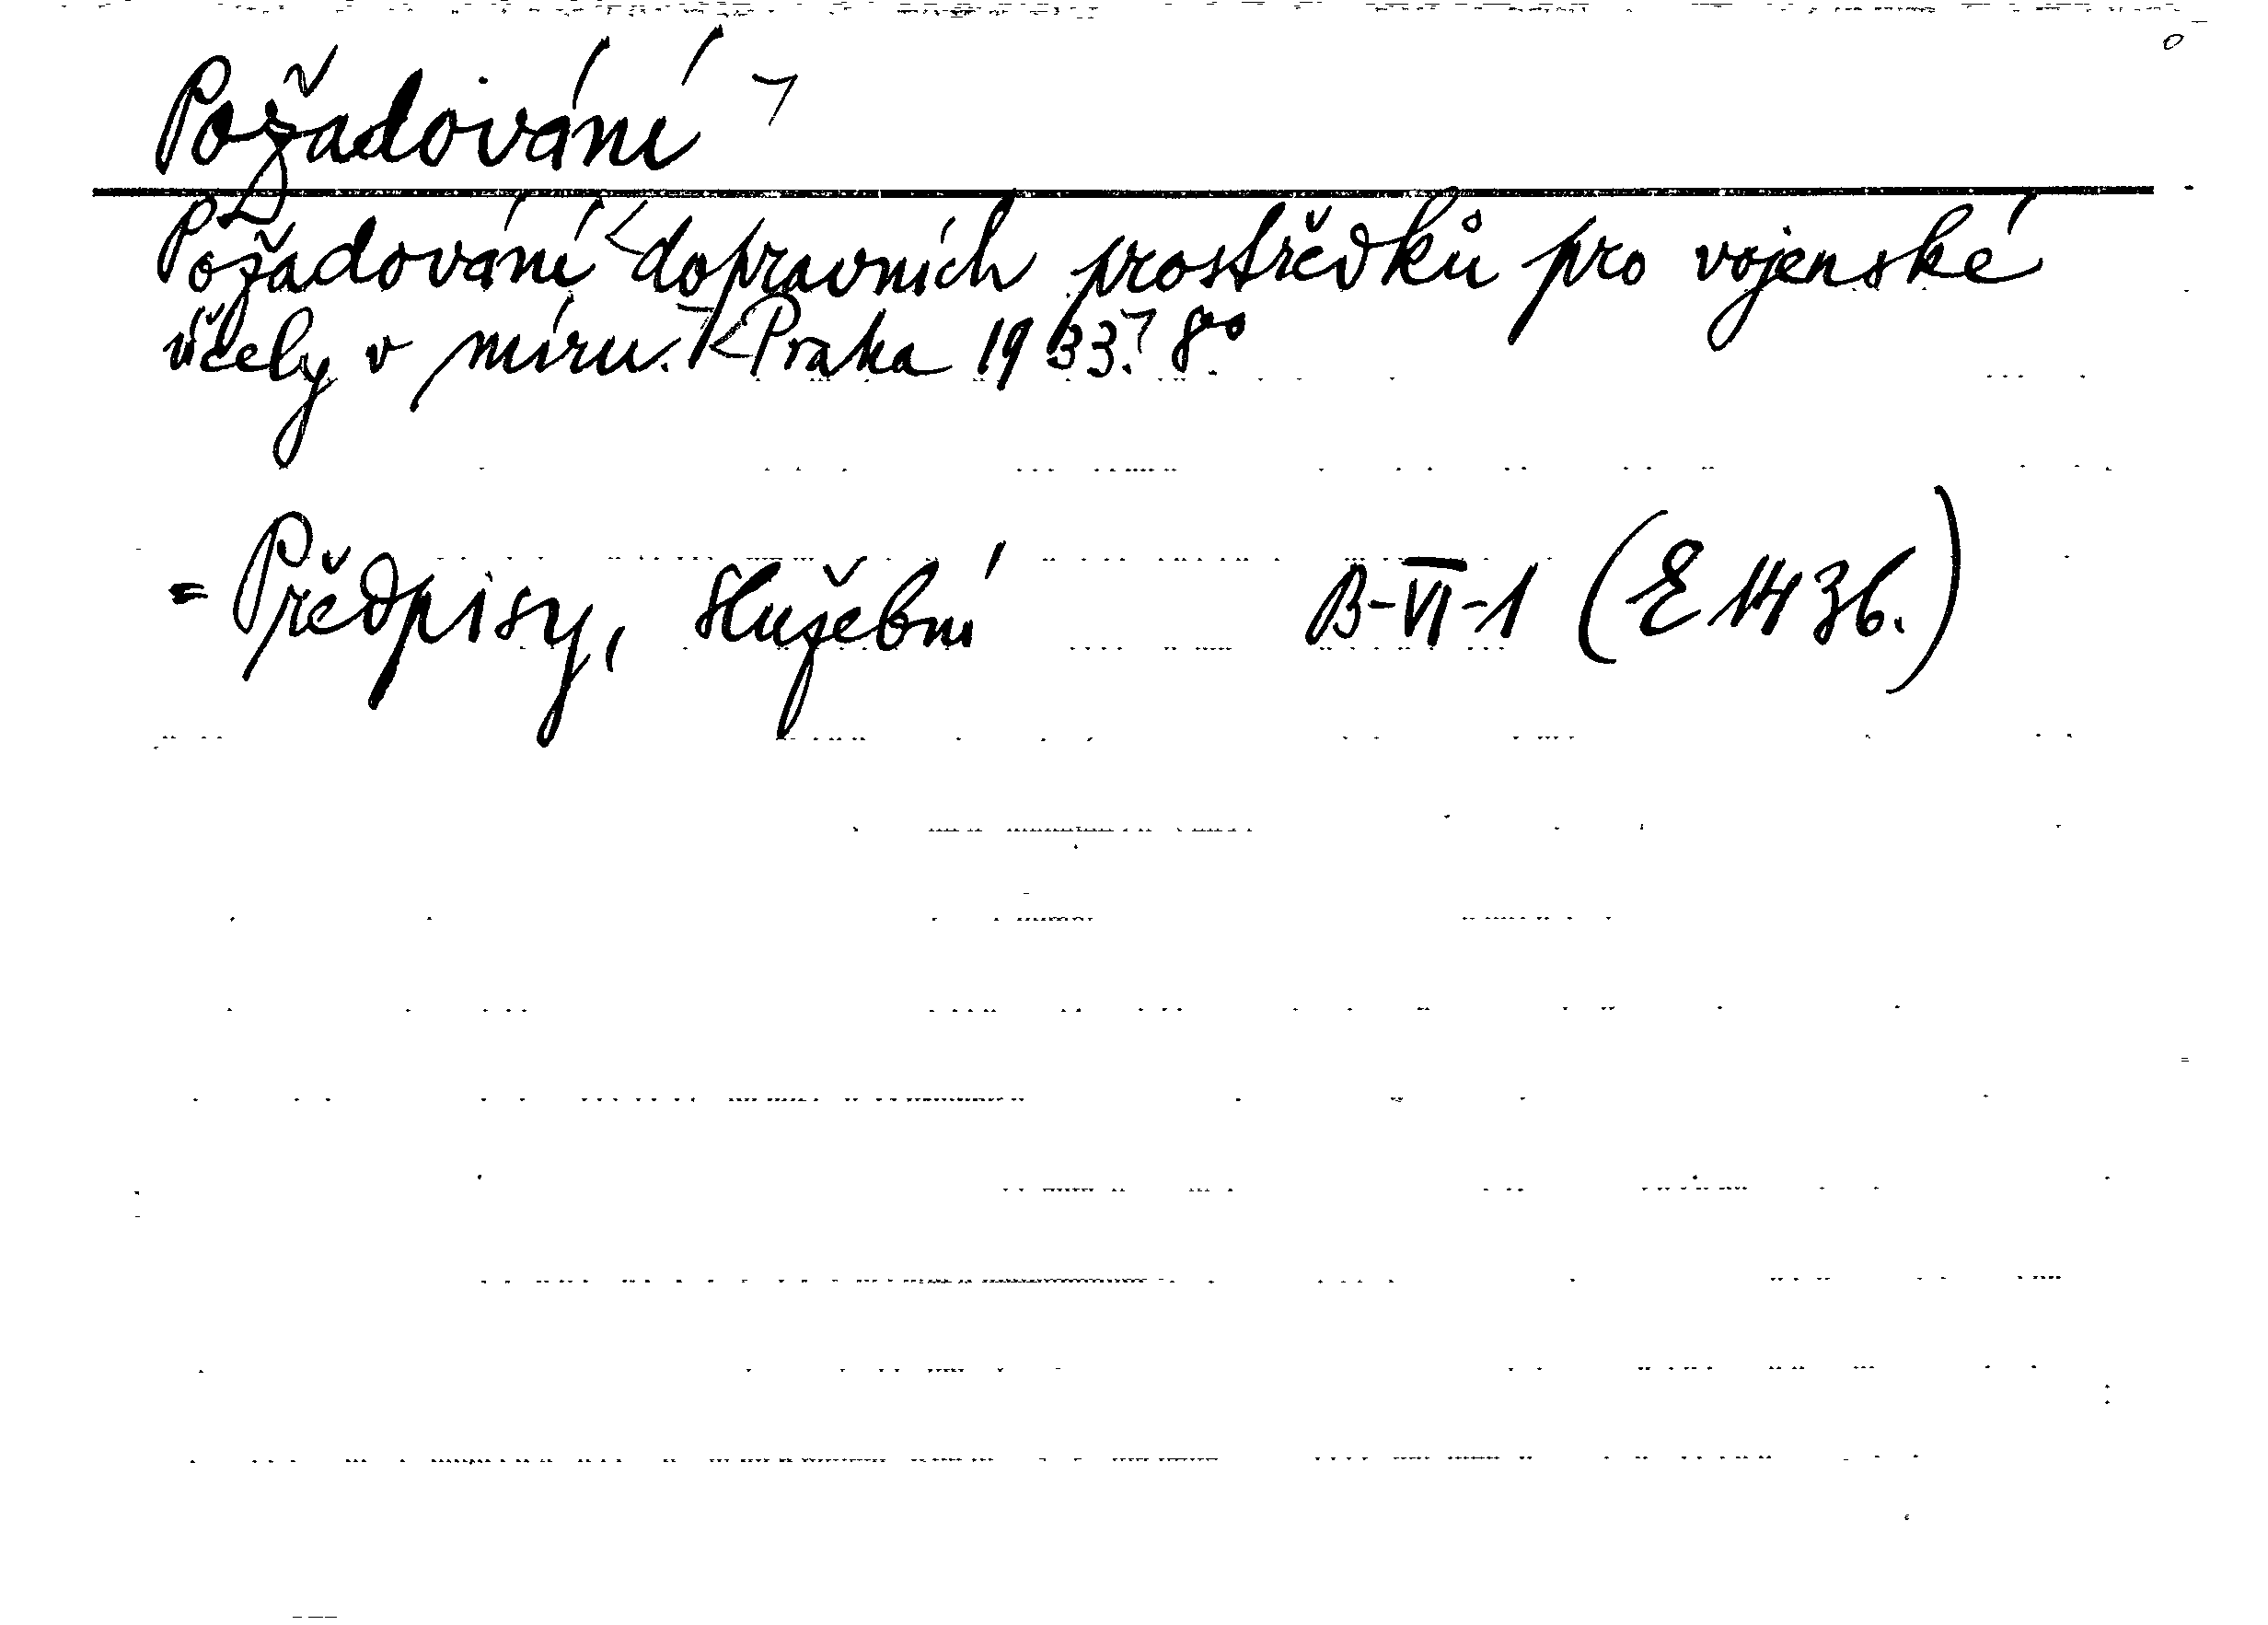 Požadování
Požadování dopravních prostředků pro vojenské
účely v míru. Praha 1933. 8°
= Předpisy, služební B-VI-1 (E 1436.)